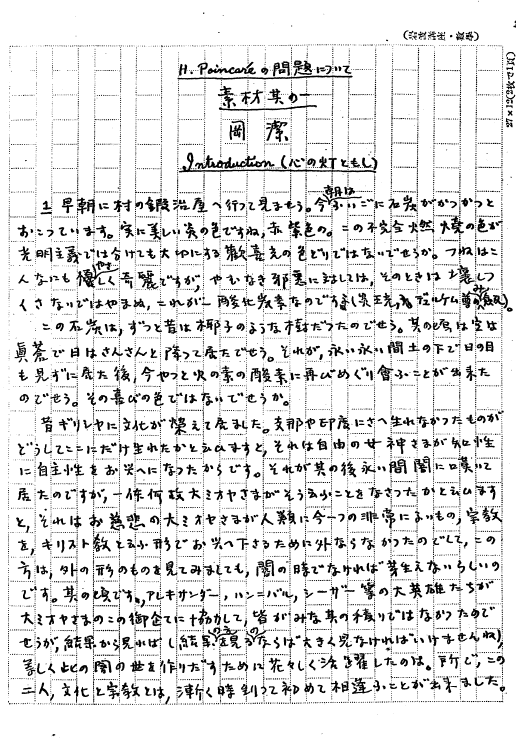 (岩波講座・数學)
27×12(2枚で1頁)
H. Poincaréの問題について
素材其の一
岡 潔
Introduction (心の灯ともし)
1 早朝に村の鍛冶屋へ行って見ませう。今朝はふいごに石炭がかつかつと
おこっています。実に美しい炎の色ですね,赤紫色の。この不完全燃焼の色が
光明主義では分けても大切にする歓喜光の色どりではないでせうか。つねはこ
んなにもやさしく優しく奇麗ですが,やむなき邪悪に対しては,そのときは壊しつ
くさないではやまぬ,これが一酸化炭素なのです
この石炭は,ずっと昔は椰子のような樹だったのでせう。其の頃は空は
真蒼で日はさんさんと降って居たでせう。それが,永い永い間土の下で日の目
も見ずに居た後,今やっと火の素の酸素に再びめぐり會ふことが出来た
のでせう。その喜びの色ではないでせうか。
昔ギリシヤに文化が榮えて居ました。支那や印度にさへ生れなかったものが
どうしてここにだけ生れたかと云ひますと,それは自由の女神さまが知性
に自主性をお与へになったからです。それが其の後永い間闇に
居たのですが,一体何故大ミオヤさまがそう云ふことをなさったかと云ひます
と,それはお慈悲の大ミオヤさまが人類に今一つの非常によいもの,宗教
を,キリスト教と云ふ形でお与へ下さるために外ならなかったのでして,この
方は,外の形のものを見てみましても,闇の時でなければ芽生えないらしいの
です。其の頃です,アレキサンダー,ハンニバル,シーザー等の大英雄たちが
大ミオヤさまのこの御企てに協力して,皆がみな其の積りではなかったので
せうが,結果から見れば(結果を見るならば大きく見なければいけませんね),
等しく此の闇の世を作りだすために花々しく活躍したのは。所で,この
二人,文化と宗教とは,漸く時到って初めて相逢ふことが出来ました。